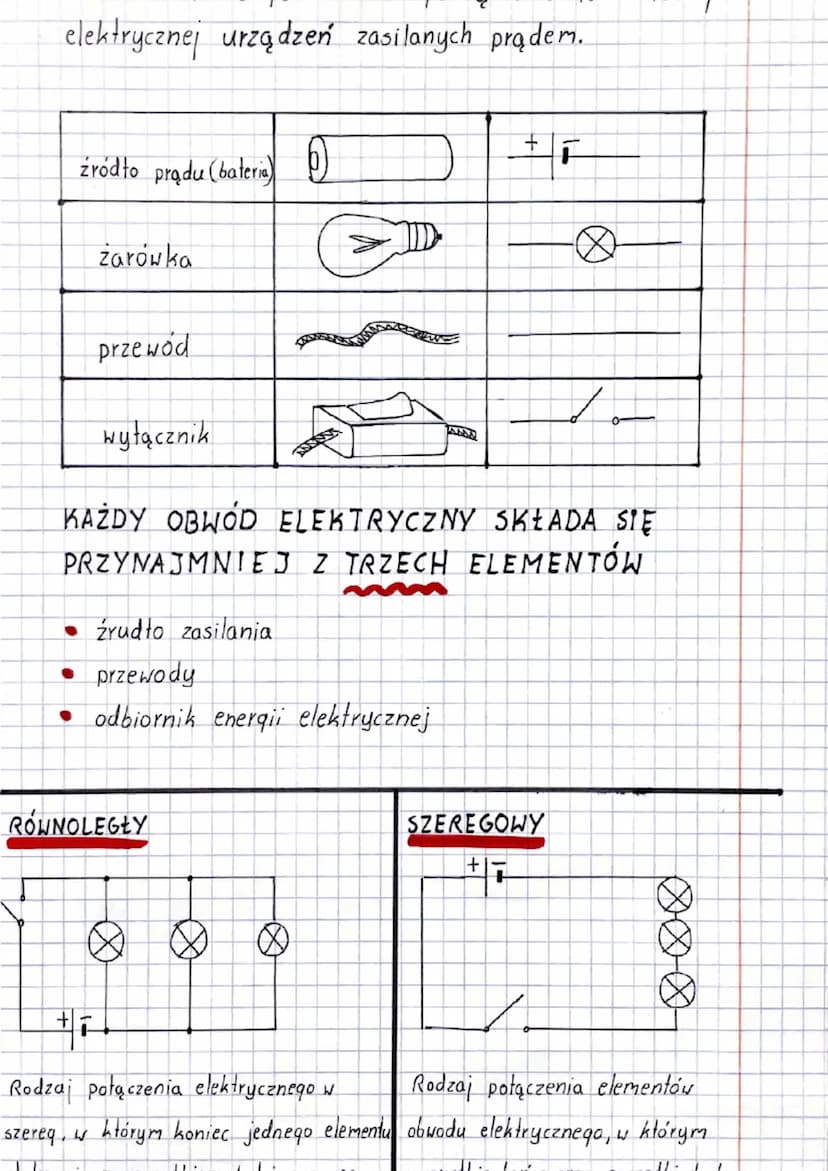 elektrycznej urządzeń zasilanych prądem.
źródło prądu (bateria)
+ -
żarówka
przewód
wyłącznik
KAŻDY OBWÓD ELEKTRYCZNY SKŁADA SIĘ
PRZYNAJMNIEJ Z TRZECH ELEMENTÓW
• źrudło zasilania
• przewody
• odbiornik energii elektrycznej
RÓWNOLEGŁY
+ -
Rodzaj połączenia elektrycznego w
szereg, w którym koniec jednego elementu
SZEREGOWY
+ -
Rodzaj połączenia elementów
obwodu elektrycznego, w którym